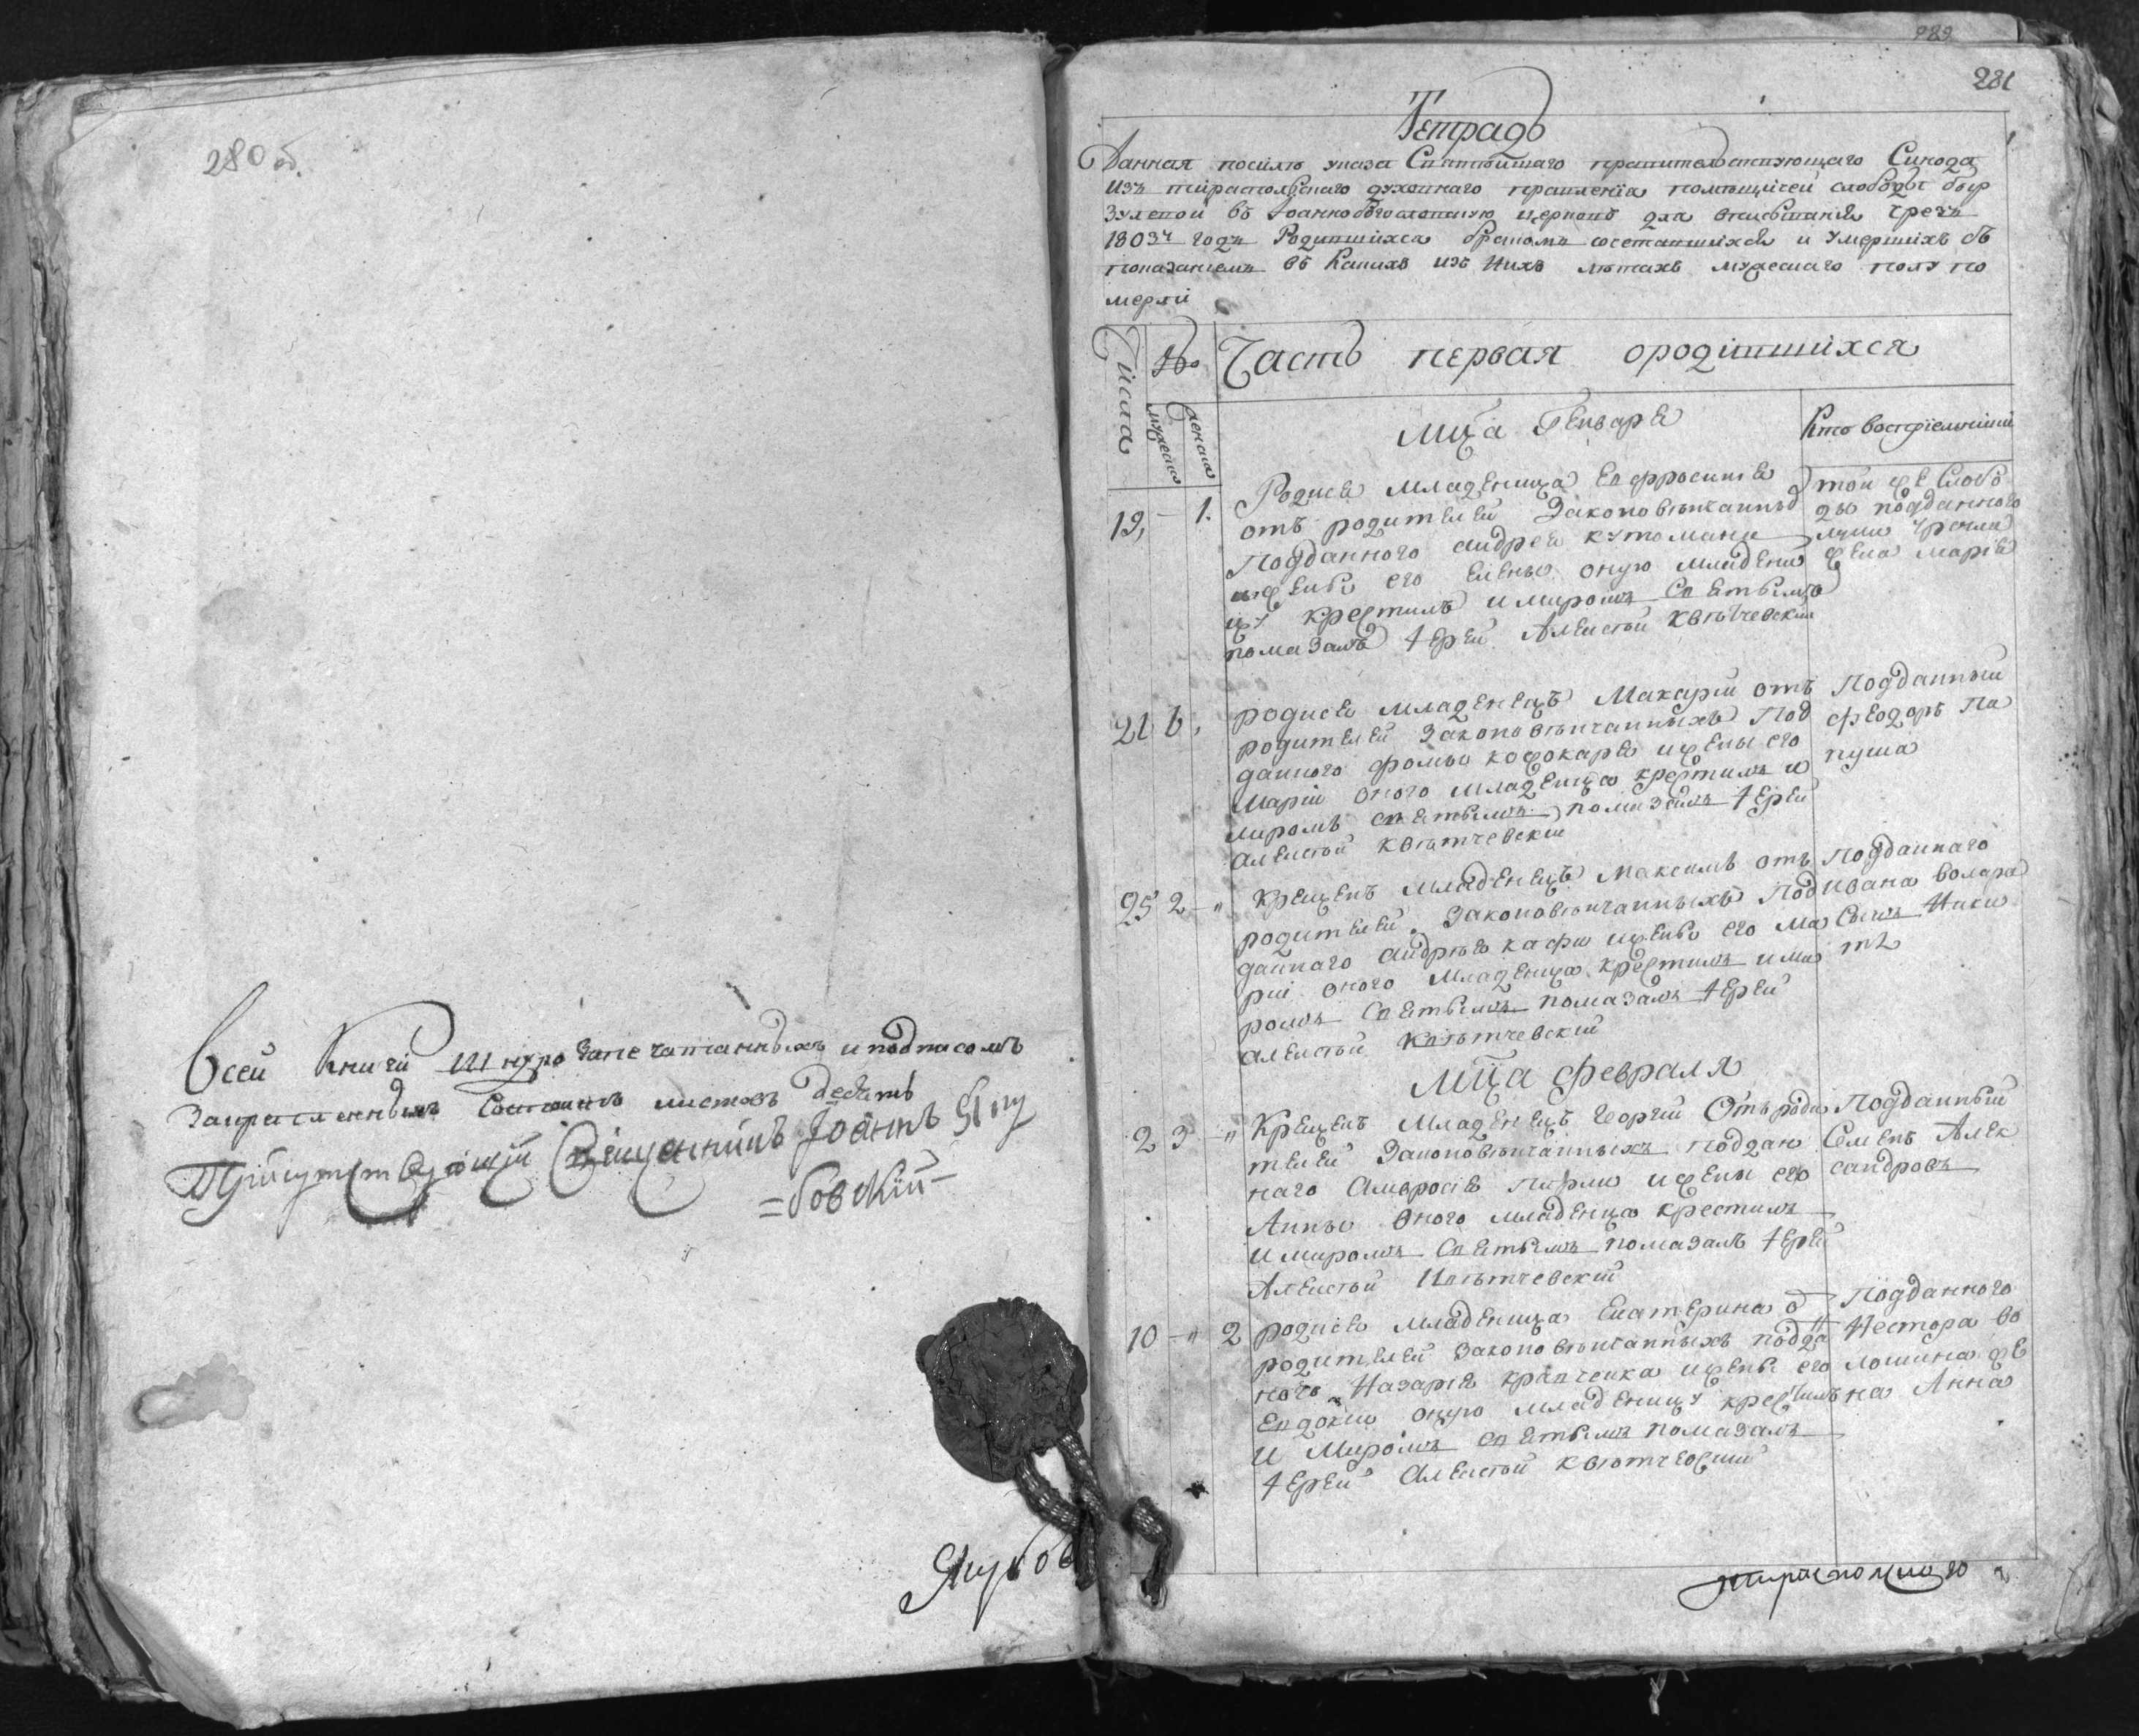 280 об.
Всей Книги шнуро запечатанныхъ и подписомъ
Закрепленныхъ Состоитъ листовъ десять
Присутствующий Священникъ Іоаннъ Яку
=бовский-
Якубов
989
281
Тетрадь
Данная посилѣ указа Святѣйшаго правительствующаго Синода
Изъ тираспольскаго духовнаго правления помѣщичей слободы бир
зуловой въ Іоаннобогословскую церковь для вписывания чрезъ
1803й годъ Родившихся бракомъ сочетавшихся и умершихъ съ
показаниемъ въ Какихъ изъ Нихъ лѣтахъ мужескаго полу по
мерли
Числа
№
Часть первая ородившихся
мужеска
женска
Мца Генваря
Кто восприемники
19, - 1.
Родися младеница Евфросиния
отъ родителей Законовѣнчанныхъ
Подданного андрея кутомани
ижены его елены оную младени
цу крестилъ имиромъ Святымъ
помазалъ Іерей Алексѣй Квѣтчевский
той же Слобо
ды подданного
жена мария
21 1,
родися младенецъ Макарий отъ
родителей Законовѣнчанныхъ Под
данного фомы кожокаря ижены его
Марии оного младенца крестилъ и
миромъ святымъ помазалъ Іерей
алексѣй квѣтчевский
Подданный
феодоръ Па
пуша
25 2 - "
Крещенъ младенецъ Максимъ отъ
родителей Законовѣнчанныхъ Под
данного андрѣя кафи ижены его ма
рии оного младенца крестилъ ими
ромъ Святымъ помазалъ Іерей
алексѣй Квѣтчевский
Подданнаго
ивана волара
Сынъ Ники
та
Мца февраля
2 3 - "
Крещенъ младенецъ георгий Отъ роди
телей Законовѣнчанныхъ поддан
наго Амвросия ижены его
Анны оного младенца крестилъ
имиромъ Святымъ помазалъ Іерей
Алексѣй Квѣтчевский
Подданный
Семенъ Алек
сандровъ
10 - " 2
родися младеница Екатерина Ѿ
родителей Законовѣнчанныхъ подда
ного Назария кравченка ижены его
Евдокии оную младеницу крестилъ
и Миромъ святымъ помазалъ
Іерей алексѣй квѣтчевский
Подданного
Нестора во
лошина же
на Анна
тираспольского